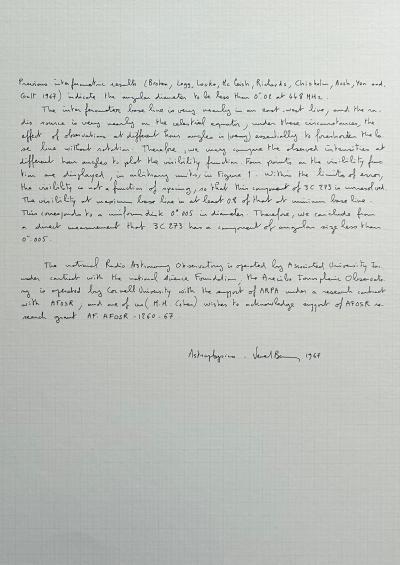 Previous interferometric results (Broten, Legg, Locke, Mc Leish, Richards, Chisholm, Gush, Yen and.
Galt 1967) indicate the angular diameter to be less than 0".02 at 448 MHz.
The interferometer base line is very nearly in an east-west line, and the ra-
dio source is very nearly on the celestial equator, under these circumstances, the
effect of observations at different hour angles is (very) essentially to foreshorten the ba
se line without rotation. Therefore, we may compare the observed intensities at
different hour angles to plot the visibility function. Four points on the visibility func-
tion are displayed, in arbitrary units, in Figure 1. Within the limits of error,
the visibility is not a function of spacing, so that this component of 3C 273 is unresolved.
The visibility at maximum base line is at least 0.8 of that at minimum base line.
This corresponds to a uniform disk 0".005 in diameter. Therefore, we can conclude from
a direct measurement that 3C 273 has a component of angular size less than
0".005.
The national Radio Astronomy Observatory is operated by Associated University Inc.
under contract with the national science Foundation, the Arecibo Ionospheric Observato
ry is operated by Cornell University with the support of ARPA under a research contract
with AFOSR, and one of us (M.H. Cohen) wishes to acknowledge support of AFOSR re-
search grant AF. AFOSR-1260-67.
1967